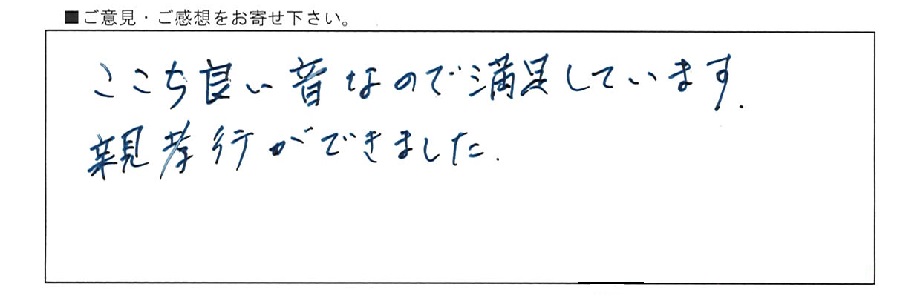 ■ご意見・ご感想をお寄せ下さい。
ここち良い音なので満足しています.
親孝行ができました.